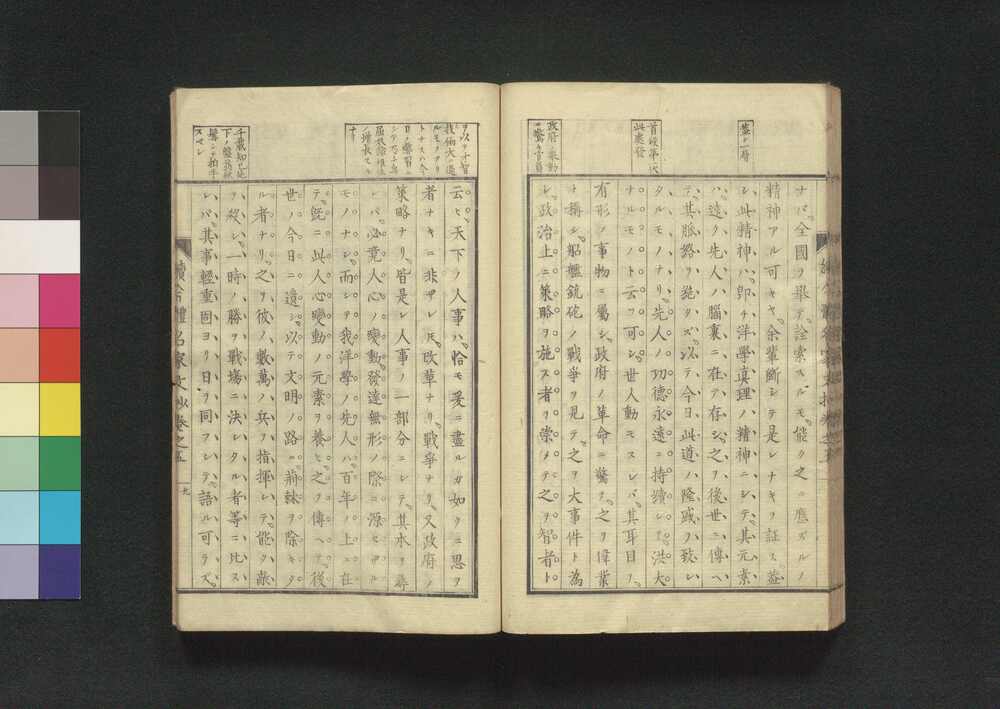 ナバ全國ヲ擧テ詮索スルモ能ク之ニ應ズルノ
精神アル可キヤ余輩斷シテ是レナキヲ証ス蓋
シ此精神ハ卽チ洋學真理ノ精神ニシテ其元素
ハ遠ク先人ノ腦裏ニ在テ存シ之ヲ後世ニ傳ヘ
テ其脈絡ヲ絶タズ以テ今日此道ノ隆盛ヲ致シ
タルモノナリ先人ノ功德永遠ニ持續シテ洪大
ナルモノト云フ可シ世人動モスレバ其耳目ヲ
有形ノ事物ニ屬シ政府ノ革命ニ驚キ之ヲ偉業
ト稱シ船艦銃砲ノ戰爭ヲ見テ之ヲ大事件ト為
シ政治上ニ策略ヲ施ス者ヲ崇メテ之ヲ智者ト
蓋シ一層
首段第一次
此處發
政府ノ
云ヒ天下ノ人事ハ恰モ爰ニ盡ルガ如クニ思フ
者ナキニ非ザレ𪜈改革ナリ戰爭ナリ又政府ノ
策略ナリ皆是レ人事ノ一部分ニシテ其本ヲ尋
レバ必竟人心ノ變動發達無形ノ際ニ源セザル
モノナシ而シテ我洋學ノ先人ハ百年ノ上ニ在
テ旣ニ此人心變動ノ元素ヲ養ヒ之ヲ傳ヘテ後
世ノ今日ニ遺シ以テ文明ノ路ニ荊棘ヲ除キタ
ル者ナリ之ヲ彼ノ數萬ノ兵ヲ指揮シテ能ク敵
ヲ殺シ一時ノ勝ヲ戰場ニ決シタル者等ニ比ス
レバ其事輕重固ヨリ日ヲ同フシテ語ル可ラズ
千載知己
スベシ
續今體名家文抄卷之五
九